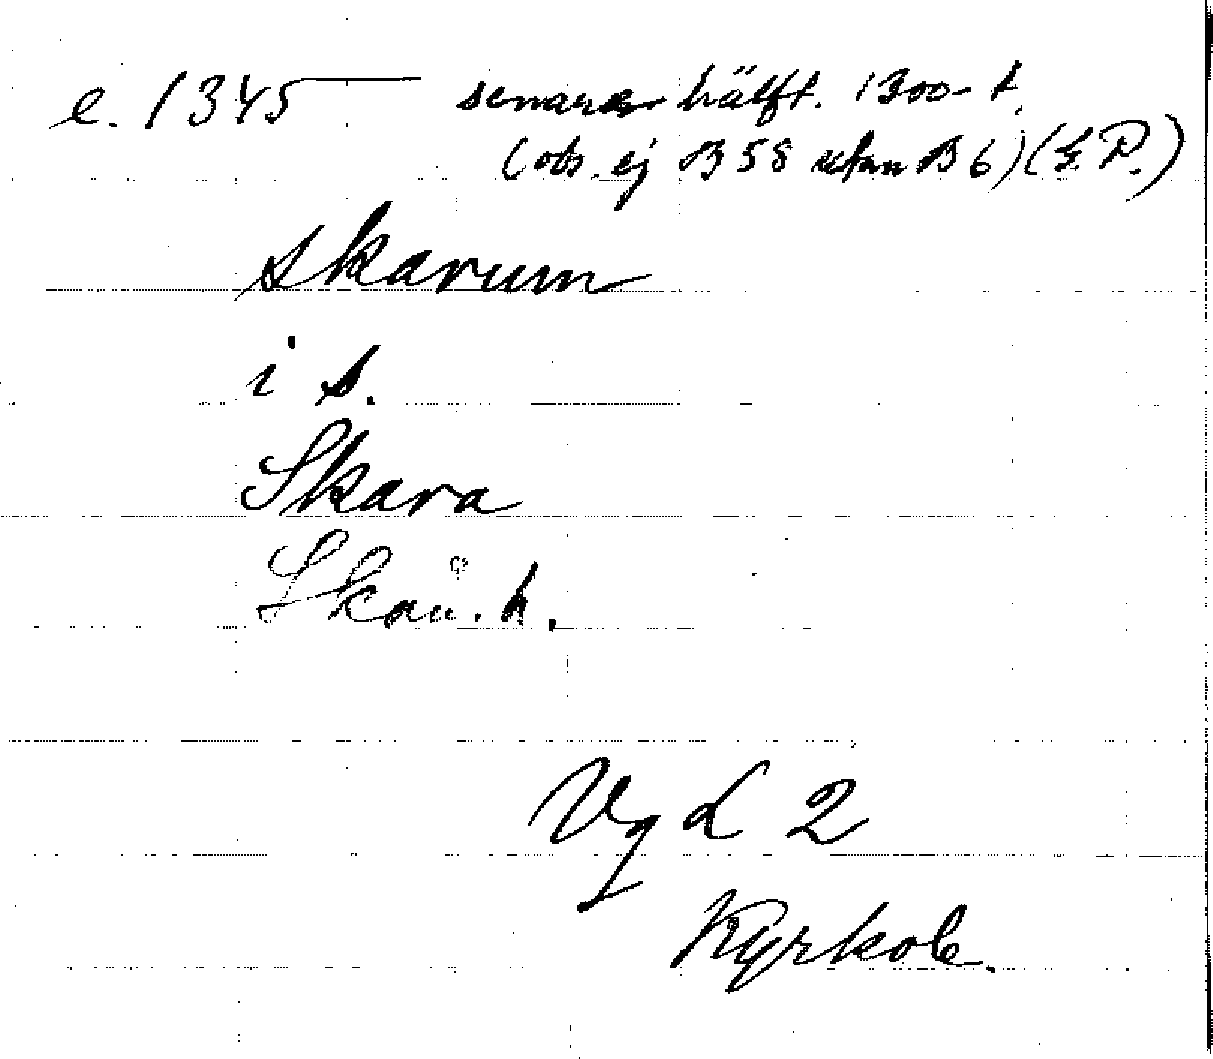 e. 1345 senare hälft. 1300-t.
(obs. ej B 58 utan B 6) (G. P.)
skarum
i s.
Skara
Skån. h.
Vg L 2
Kyrkob.